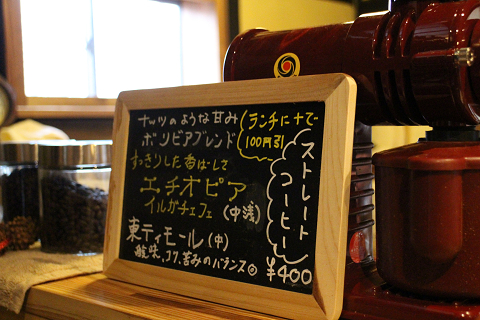 ナッツのような甘み
ボリビアブレンド
すっきりした香ばしさ
エチオピア
イルガチェフェ（中浅）
東ティモール（中）
酸味、コク、苦みのバランス◎
ランチに+で
100円引
ストレート
コーヒー
¥400